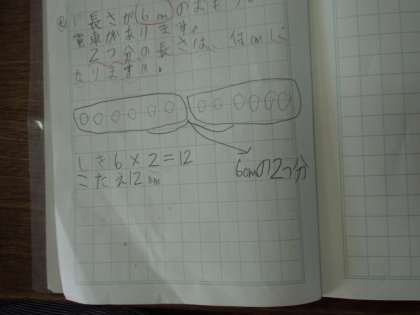 ② 長さが6mのおもちゃの
電車があります。
2つ分の長さは、何cmに
なりますか。
しき6×2=12
こたえ12cm
6cmの2つ分